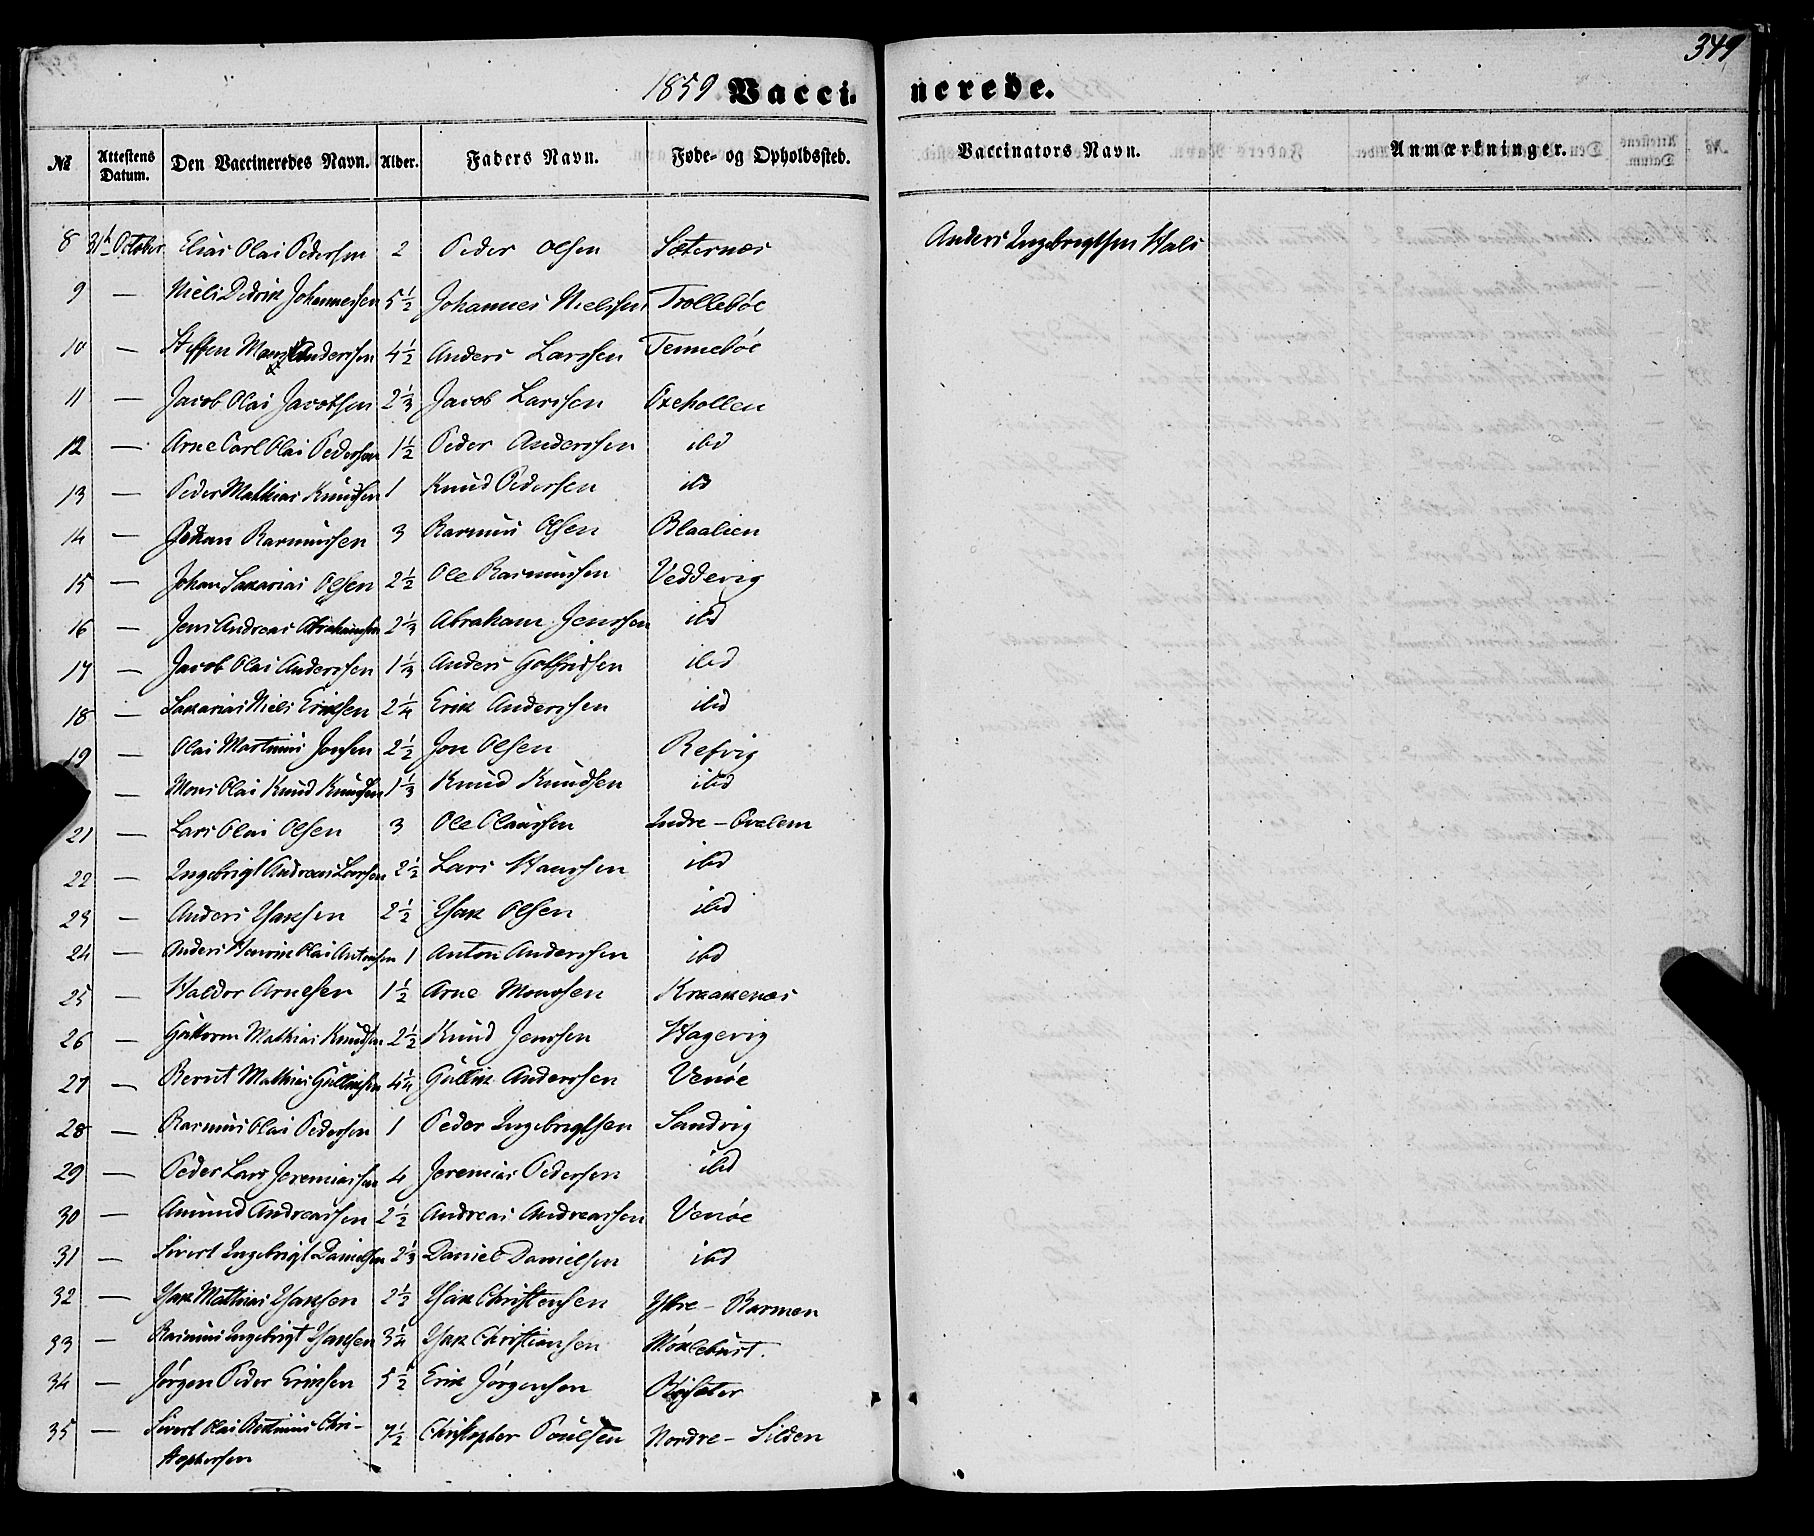 349
1859 Vacci- nerede.
№ Attestens Datum. Den Vaccineredes Navn. Alder. Faders Navn. Føde- og Opholdssted. Vaccinators Navn. Anmærkninger.
8 31te October Elias Olai Pedersen 2 Peder Olsen Sæternæs Anders Ingebrigtsen Hals
9 — Niels Didrik Johannessen 5½ Johannes Nielssen Trolleböe
10 — Steffen Mons Anderssen 4½ Anders Larssen Tenneböe
11 — Jacob Olai Jacobsen 2⅓ Jacob Larssen Oxehollen
12 — Arne Carl Olai Pedersen 1½ Peder Anderssen ibd
13 — Peder Mathias Knudsen 1 Knud Pedersen ibd
14 — Johan Rasmussen 3 Rasmus Olsen Blaalien
15 — Johan Sakarias Olsen 2½ Ole Rasmussen Vedvig
16 — Jens Andreas Abrahamsen 2⅓ Abraham Jenssen ibd
17 — Jacob Olai Anderssen 1⅓ Anders Gothfredsen ibd
18 — Sakarias Niels Eriksen 2¼ Erik Anderssen ibd
19 — Olai Martinus Jonsen 2½ Jon Olsen Refvig
— Mons Olai Knud Knudsen 1⅓ Knud Knudsen ibd
21 — Lars Olai Olsen 3 Ole Olaussen Indre-Qvalem
22 — Ingebrigt Andreas Larssen 2½ Lars Hanssen ibd
23 — Anders Isaksen 2½ Isak Olsen ibd
24 — Anders Henrik Olai Antonsen 1 Anton Anderssen ibd
25 — Haldor Arnesen 1½ Arne Monssen Kraakenæs
26 — Guttorm Mathias Knudsen 2½ Knud Jenssen Hagevig
27 — Bernt Mathias Gulliksen 4¼ Gullik Anderssen Venöe
28 — Rasmus Olai Pedersen 1 Peder Ingebrigtsen Sandvig
29 — Peder Lars Jeremiassen 4 Jeremias Pedersen ibd
30 — Amund Andreassen 2½ Andreas Andreassen Venöe
31 — Sivert Ingebrigt Danielsen 2⅓ Daniel Danielsen ibd
32 — Isak Mathias Isaksen 2½ Isak Christensen Ytre-Barmen
33 — Rasmus Ingebrigt Isaksen 3¼ Isak Christiansen Möklebust.
34 — Jörgen Peder Eriksen 5½ Erik Jörgensen
35 — Sivert Olai Chri-
stophersen 7½ Christopher Poulsen Nordre-Silden